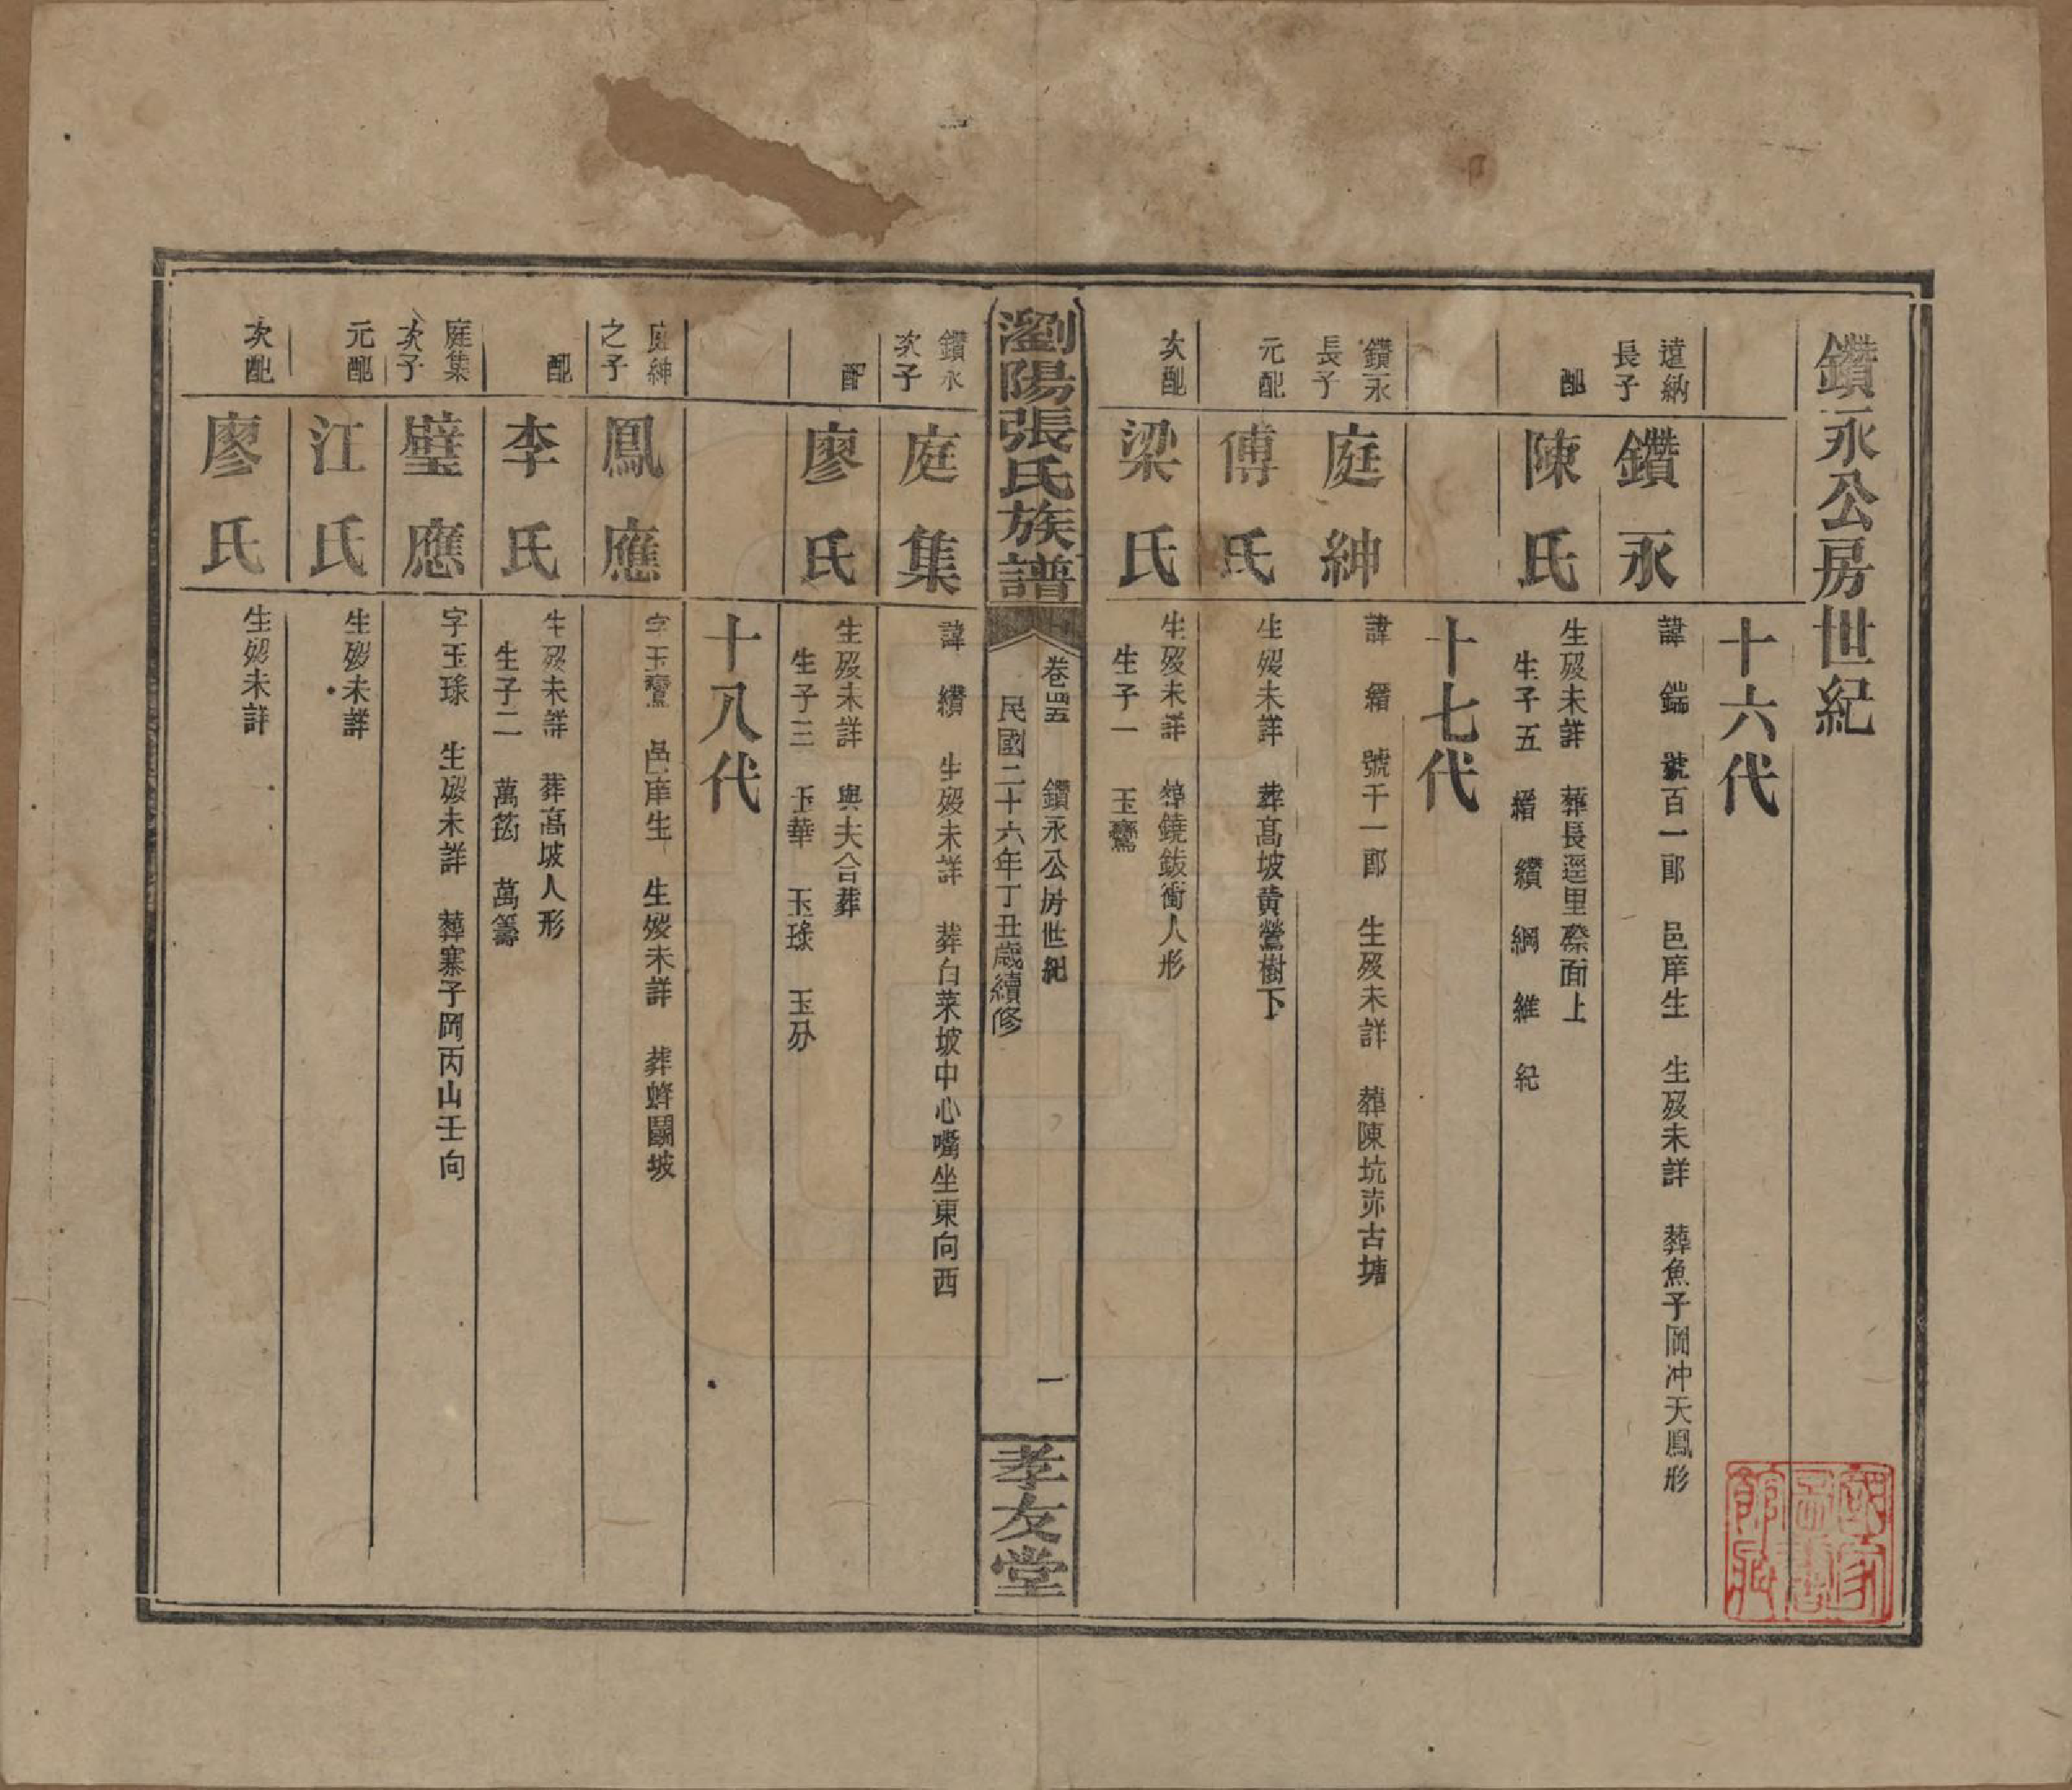 鑽永公房世紀
十六代
遠納
長子
鑽永
諱 鍴 號百一郎 邑庠生 生歿未詳 葬魚子岡冲天鳳形
配
陳氏
生歿未詳 葬長逕里墩面上
生子五 縉 纘 綱 維 紀
十七代
鑽永
長子
庭紳
諱 縉 號千一郎 生歿未詳 葬陳坑赤古塘
元配
傅氏
生歿未詳 葬高坡黃鶯樹下
次配
梁氏
生歿未詳 葬鐃鈸衝人形
生子一 玉鸞
瀏陽張氏族譜
卷四五 鑽永公房世紀 一
民國二十六年丁丑歲續修
孝友堂
鑽永
次子
庭集
諱 纘 生歿未詳 葬白菜坡中心嘴坐東向西
配
廖氏
生歿未詳 與夫合葬
生子三 玉華 玉球 玉分
十八代
庭紳
之子
鳳應
字玉鸞 邑庠生 生歿未詳 葬蜂鬭坡
配
李氏
生歿未詳 葬高坡人形
生子二 萬筠 萬籌
庭集
次子
璧應
字玉球 生歿未詳 葬寨子岡丙山壬向
元配
江氏
生歿未詳
次配
廖氏
生歿未詳